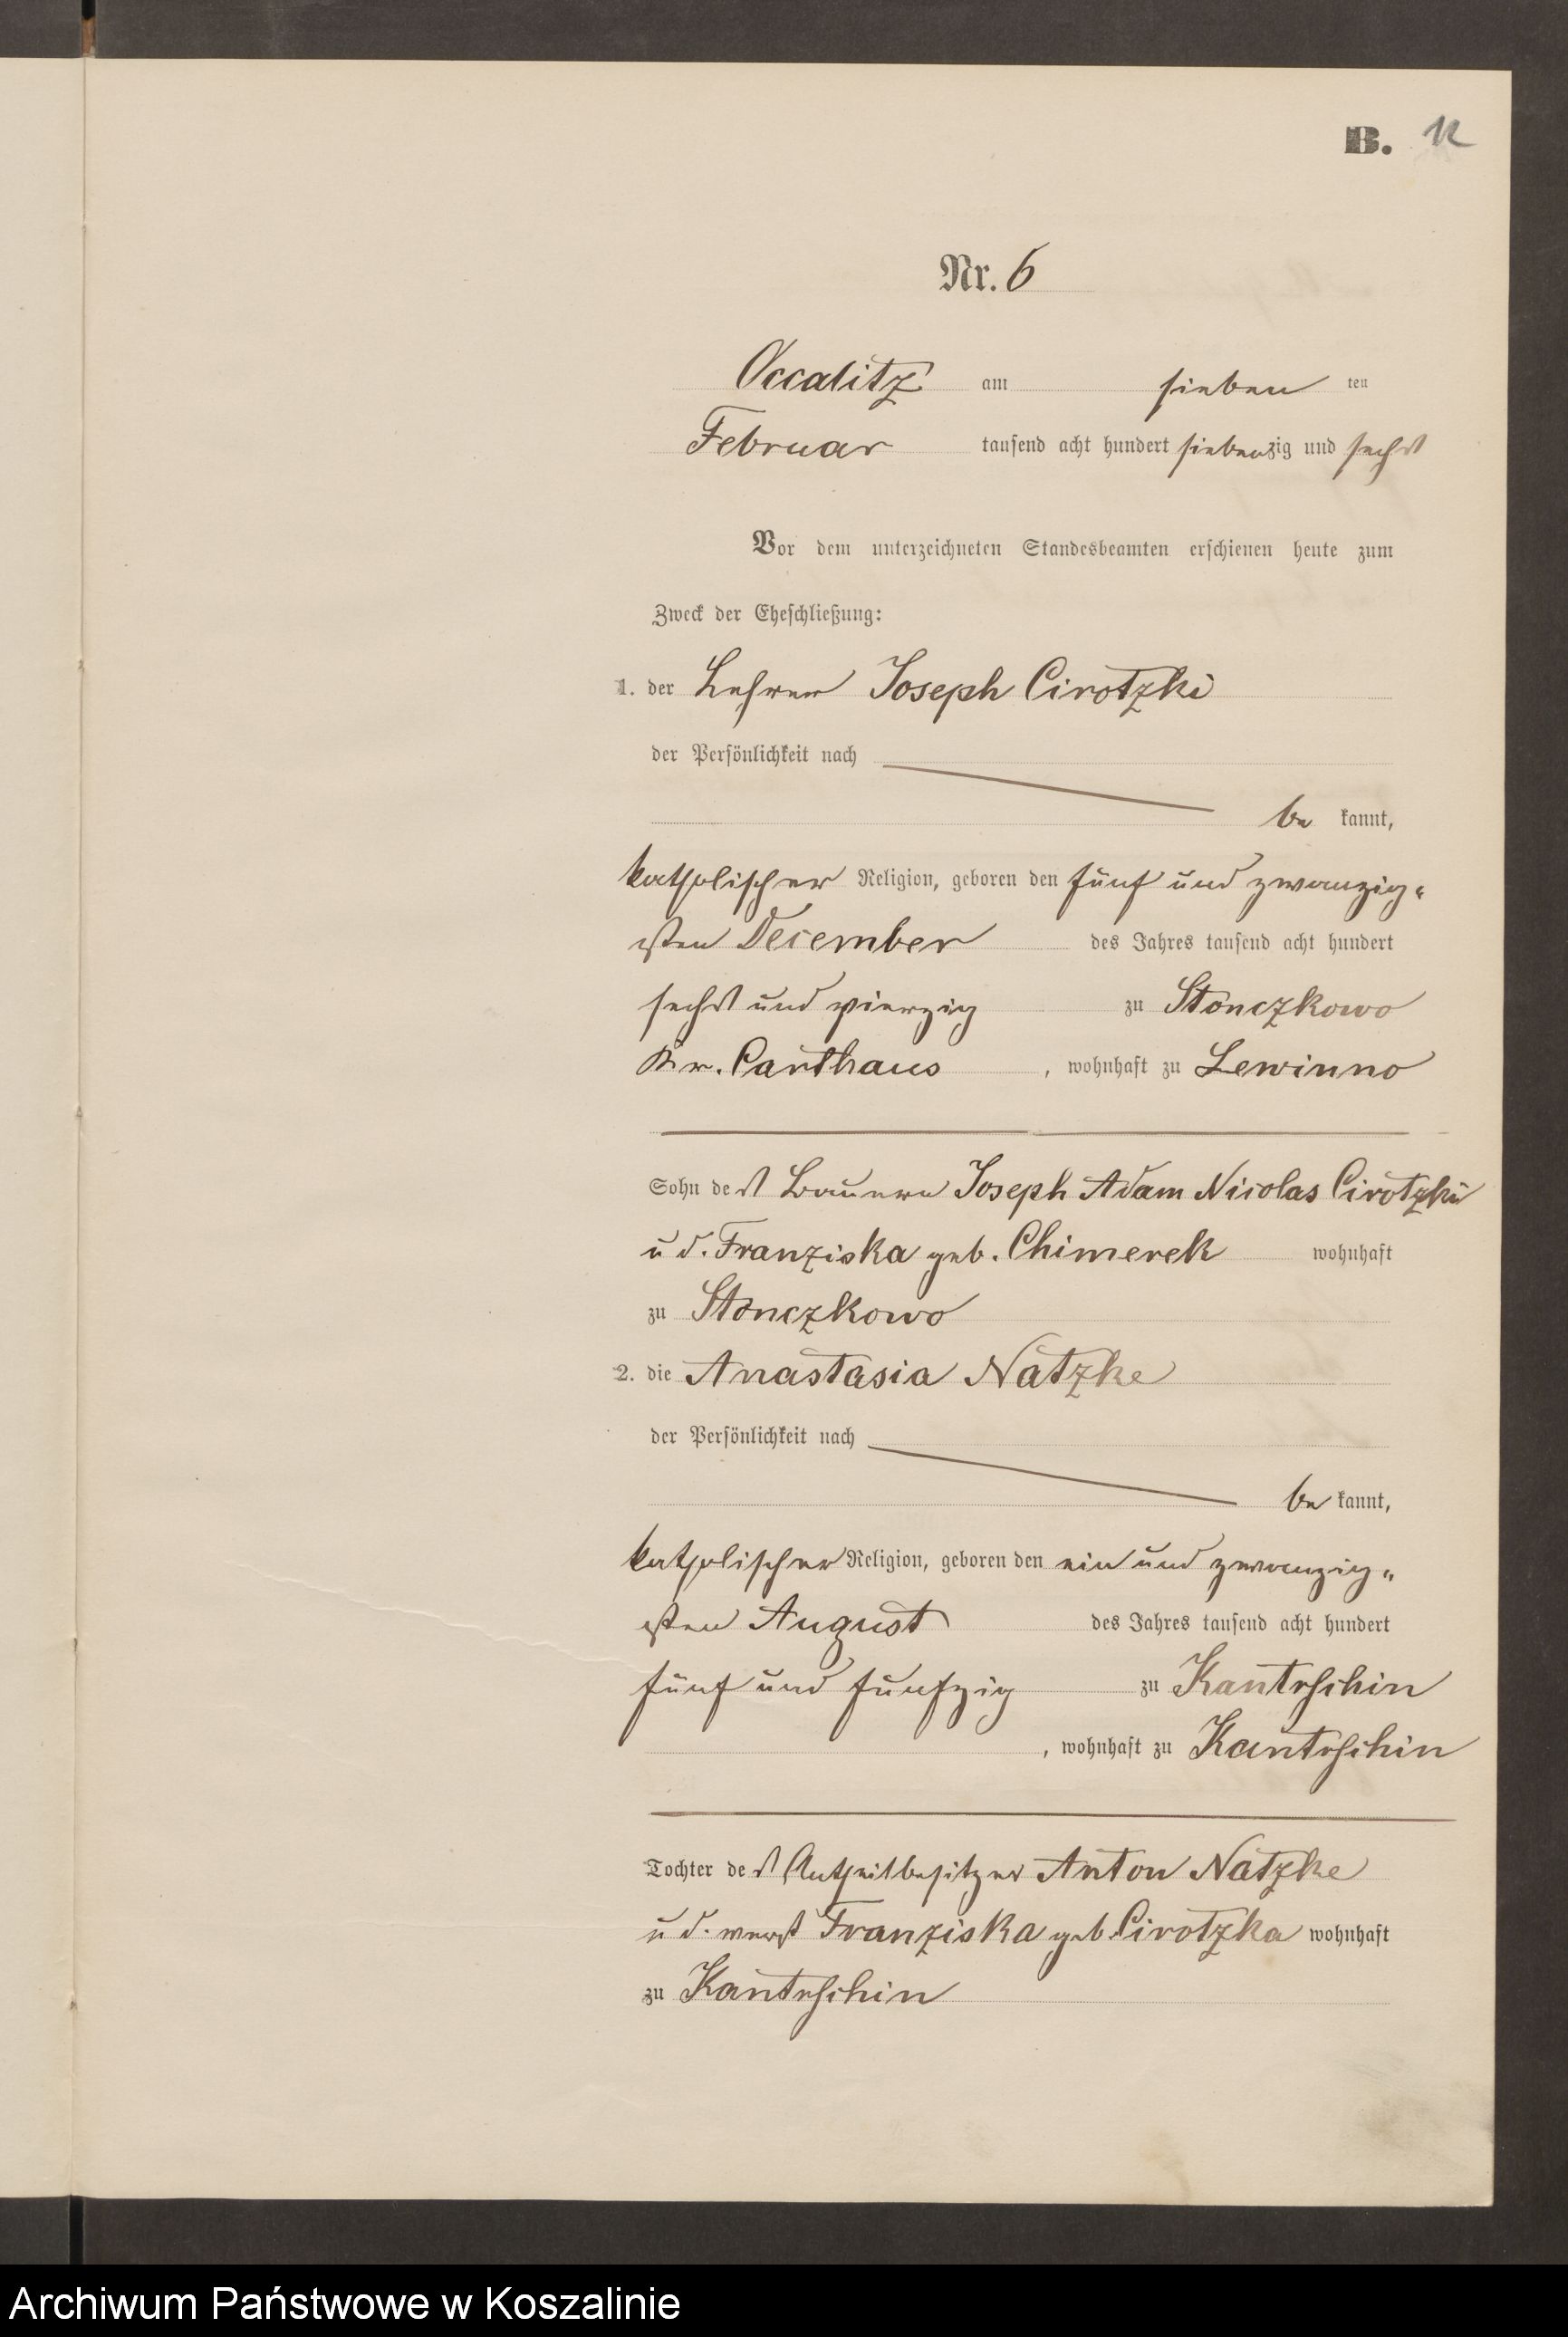 B. 12
Nr. 6
Occalitz am sieben ten
Februar tausend acht hundert siebenzig und sechs
Vor dem unterzeichneten Standesbeamten erschienen heute zum
Zweck der Eheschließung:
1. der Lehrer Joseph Cirotzki
der Persönlichkeit nach
be kannt,
katholischer Religion, geboren den fünf und zwanzig-
sten December des Jahres tausend acht hundert
sechs und vierzig zu Stonczkowo
Kr. Carthaus, wohnhaft zu Lewinno
Sohn des Bauern Joseph Adam Nicolas Cirotzki
u d. Franziska geb. Chimerek wohnhaft
zu Stonczkowo
2. die Anastasia Natzke
der Persönlichkeit nach
be kannt,
katholischer Religion, geboren den ein und zwanzig-
sten August des Jahres tausend acht hundert
fünf und fünfzig zu Kantrschin
, wohnhaft zu Kantrschin
Tochter des Antheilbesitzer Anton Natzke
u d. Franziska geb. Cirotzka wohnhaft
zu Kantrschin
Archiwum Państwowe w Koszalinie